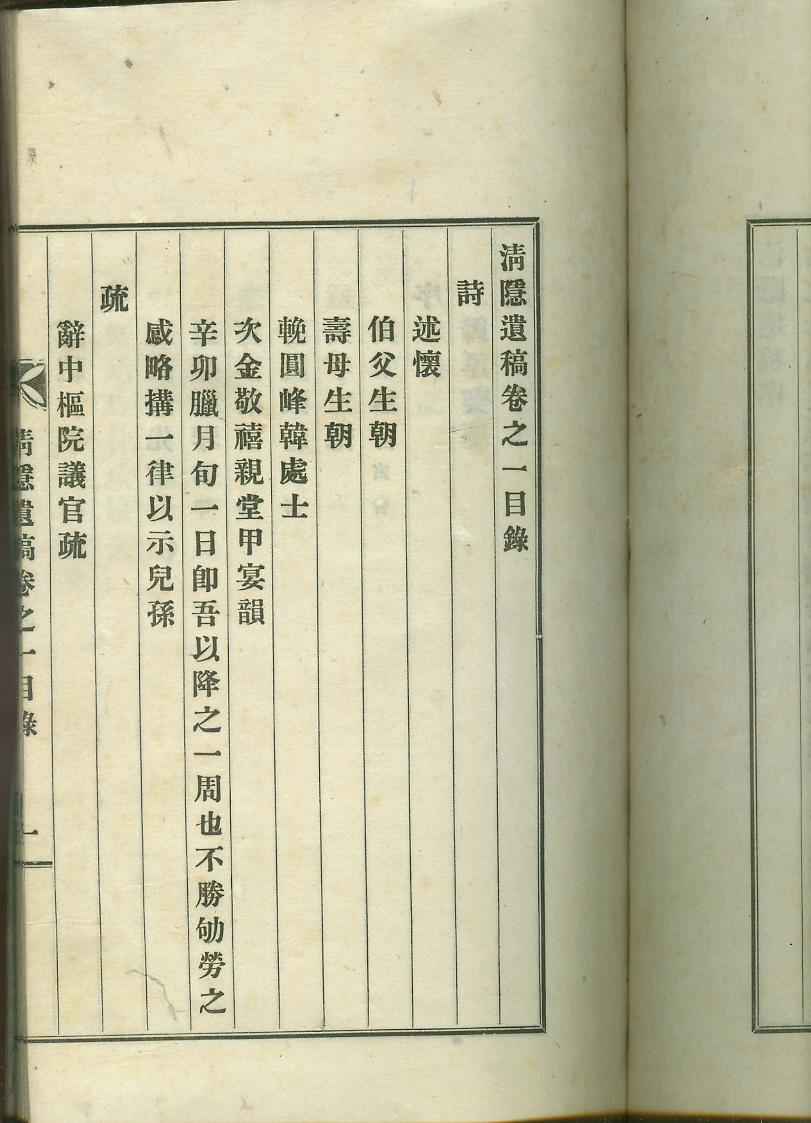 淸隱遺稿卷之一目錄
詩
述懷
伯父生朝
壽母生朝
輓圓峰韓處士
次金敬禧親堂甲宴韻
辛卯臘月旬一日卽吾以降之一周也不勝劬勞之
感略搆一律以示兒孫
疏
辭中樞院議官疏
淸隱遺稿卷之一目錄 一